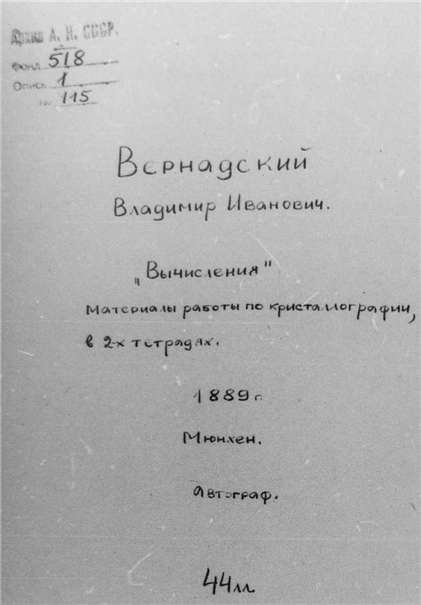 Архив А. Н. СССР.
Фонд 518
Опись 1
№ 115
Вернадский
Владимир Иванович.
„Вычисления"
Материалы работы по кристаллографии,
в 2-х тетрадях.
1889 г.
Мюнхен.
Автограф.
44 лл.